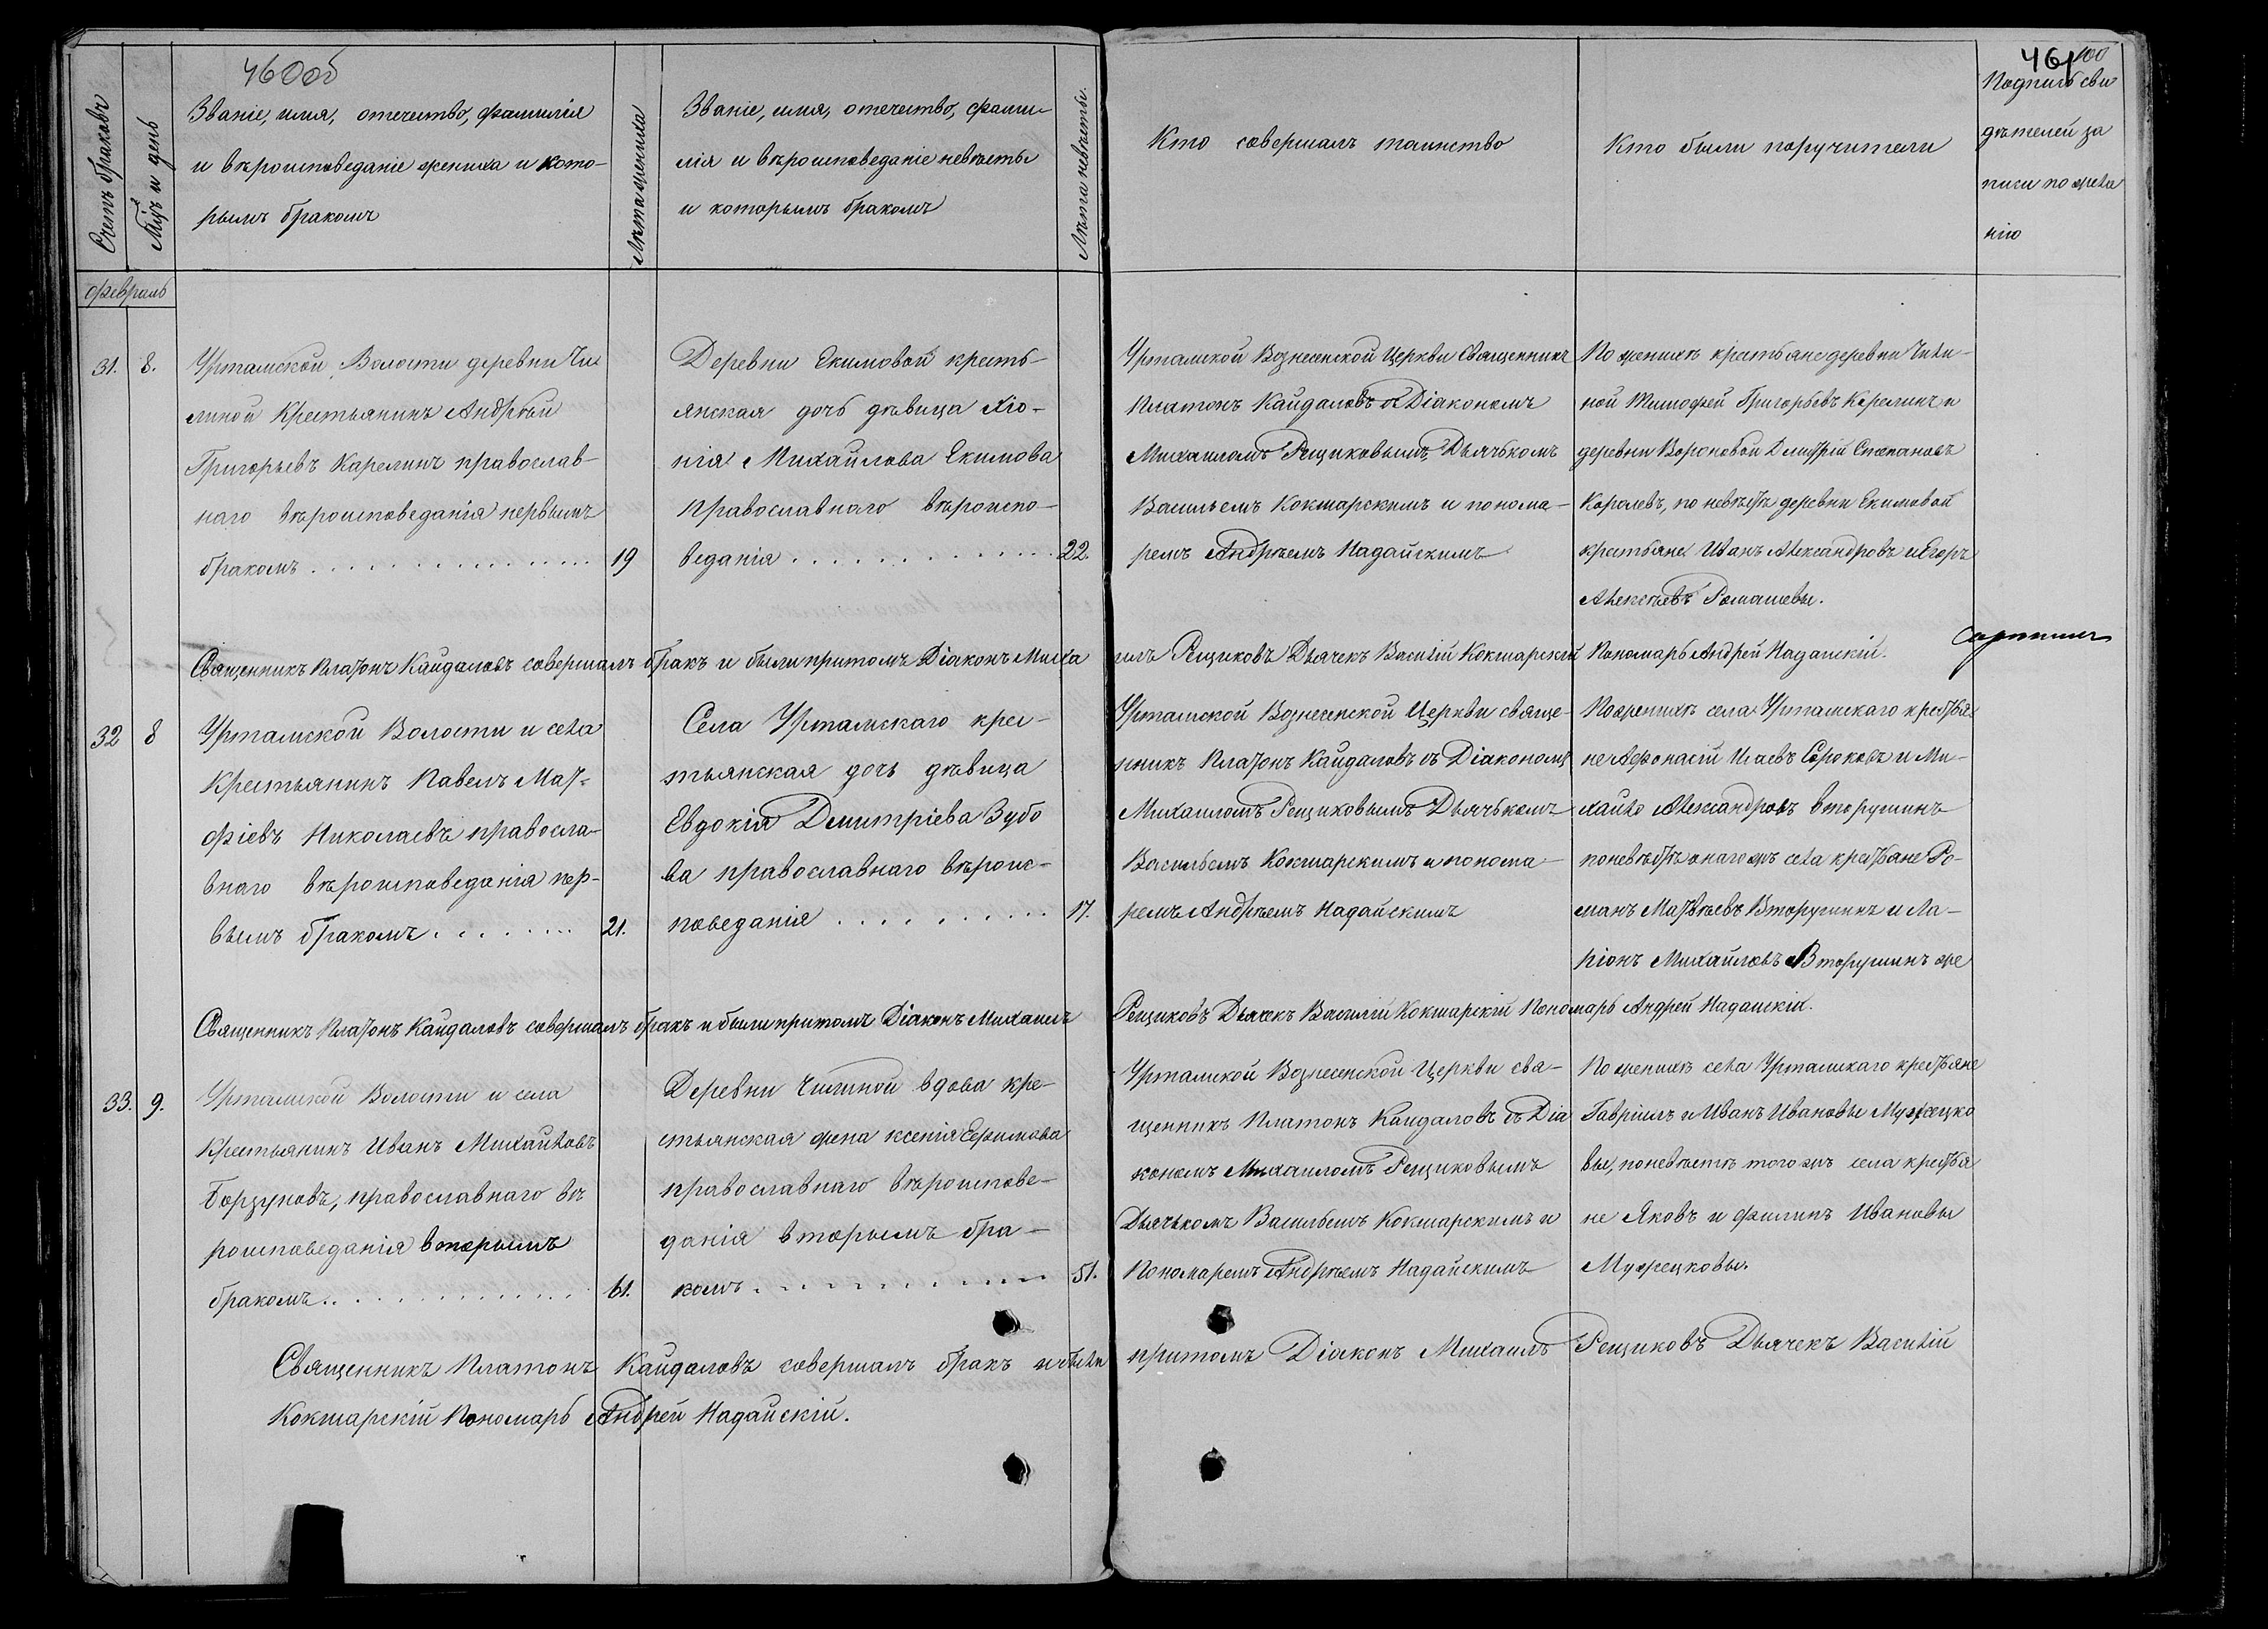 460об
461
100
Счетъ браковъ
Мѣцъ и день
Званіе, имя, отечество, фамилія
и вѣроисповеданіе жениха и кото-
рымъ бракомъ
Лѣта жениха
Званіе, имя, отечество, фами-
лія и вѣроисповеданіе невѣсты
и которымъ бракомъ
Лѣта невѣсты.
Кто совершалъ таинство
Кто были поручители
Подпись сви
дѣтелей за
писи по жела
нію
Февраль
31. 8.
Уртамской Волости деревни Чи
линой Крестьянинъ Андрѣй
Григорьевъ Карелинъ православ-
наго вѣроисповеданія первымъ
бракомъ 19
Деревни Екимовой кресть-
янская дочь дѣвица Хіо-
нія Михайлова Екимова
православнаго вѣроиспо-
веданія 22
Уртамской Вознесенской Церкви Священникъ
Платонъ Кайдаловъ съ Діакономъ
Михаиломъ Рещиковымъ, Дьячькомъ
Васильемъ Кокшарскимъ и понома-
ремъ Андрѣемъ Надайскимъ
По женихѣ крестьяне деревни Чили-
ной Тимофей Григорьевъ Карелинъ и
деревни Вороновой Дмитрій Степановъ
Королевъ, по невѣстѣ деревни Екимовой
крестьяне Иванъ Александровъ и Егоръ
Алексѣевъ Ромашевы.
Священникъ Платонъ Кайдаловъ совершалъ бракъ и были притомъ Діаконъ Миха
илъ Рещиковъ Дьячекъ Василій Кокшарскій Пономарь Андрей Надаискій.
32 8
Уртамской Волости и села
Крестьянинъ Павелъ Мат-
фіевъ Николаевъ правосла-
внаго вѣроисповеданія пер-
вымъ бракомъ 21.
Села Уртамскаго крес-
тьянская дочь дѣвица
Евдокія Димитріева Зубо
ва православнаго вѣроис-
поведанія 17.
Уртамской Вознесенской Церкви свяще-
нникъ Платонъ Кайдаловъ съ Діакономъ
Михаиломъ Рещиковымъ Дьячькомъ
Васильемъ Кокшарскимъ и понома-
ремъ Андрѣемъ Надайскимъ
По женихѣ села Уртамскаго крестья
не Афонасій Исаевъ Сороковъ и Ми-
хайло Александровъ Вторушинъ
по невѣстѣ онаго жъ села крестьяне Ро-
манъ Матвѣевъ Вторушинъ и Ла-
ріонъ Михайловъ Вторушинъ же
Священникъ Платонъ Кайдаловъ совершалъ бракъ и были притомъ Діаконъ Михаилъ
Рещиковъ Дьячекъ Василій Кокшарскій Пономарь Андрей Надаискій.
33. 9.
Уртамской Волости и села
Крестьянинъ Иванъ Михайловъ
Борзуновъ, православнаго вѣ
роисповеданія вторымъ
бракомъ 61.
Деревни Чилиной вдова кре-
стьянская жена Ксенія Ефимова
православнаго вѣроисповѣ-
данія вторымъ бра-
комъ 51.
Уртамской Вознесенской Церкви свя-
щенникъ Платонъ Кайдаловъ съ Діа
кономъ Михаиломъ Рещиковымъ
Дьячькомъ Васильемъ Кокшарскимъ и
Пономаремъ Андрѣемъ Надайскимъ
По женихѣ села Уртамскаго крестьяне
Гавріилъ и Иванъ Ивановы Мужецко
вы, по невѣстѣ того жъ села крестья
не Яковъ и Филипъ Ивановы
Мужецковы.
Священникъ Платонъ Кайдаловъ совершалъ бракъ и были притомъ Діаконъ Михаилъ Рещиковъ Дьячекъ Василій
Кокшарскій Пономарь Андрей Надайскій.